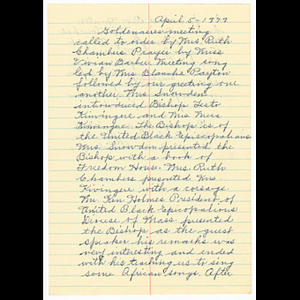 April 5-1977
Goldenaires meeting
called to order by Mrs. Ruth
Chambers Prayer by Miss
Vivian Barber. Meeting song
led by Mrs Blanche Payton
followed by our greeting one
another. Mrs. Snowden
introduced Bishop Festo
Kivingere and Mrs Mera
Kivingire. The Bishop is of
the United Black Episcopalians
Mrs. Snowden presented the
Bishop with a book of
Freedom House. Mrs. Ruth
Chambers presented Mrs
Kivingire with a corsage.
Mr. Ken Holmes President of
United Black Episcopalians
Diocese of Mass. presented
the Bishop as the guest
speaker his remarks was
very interesting and ended
with his teaching us to sing
some African songs. After